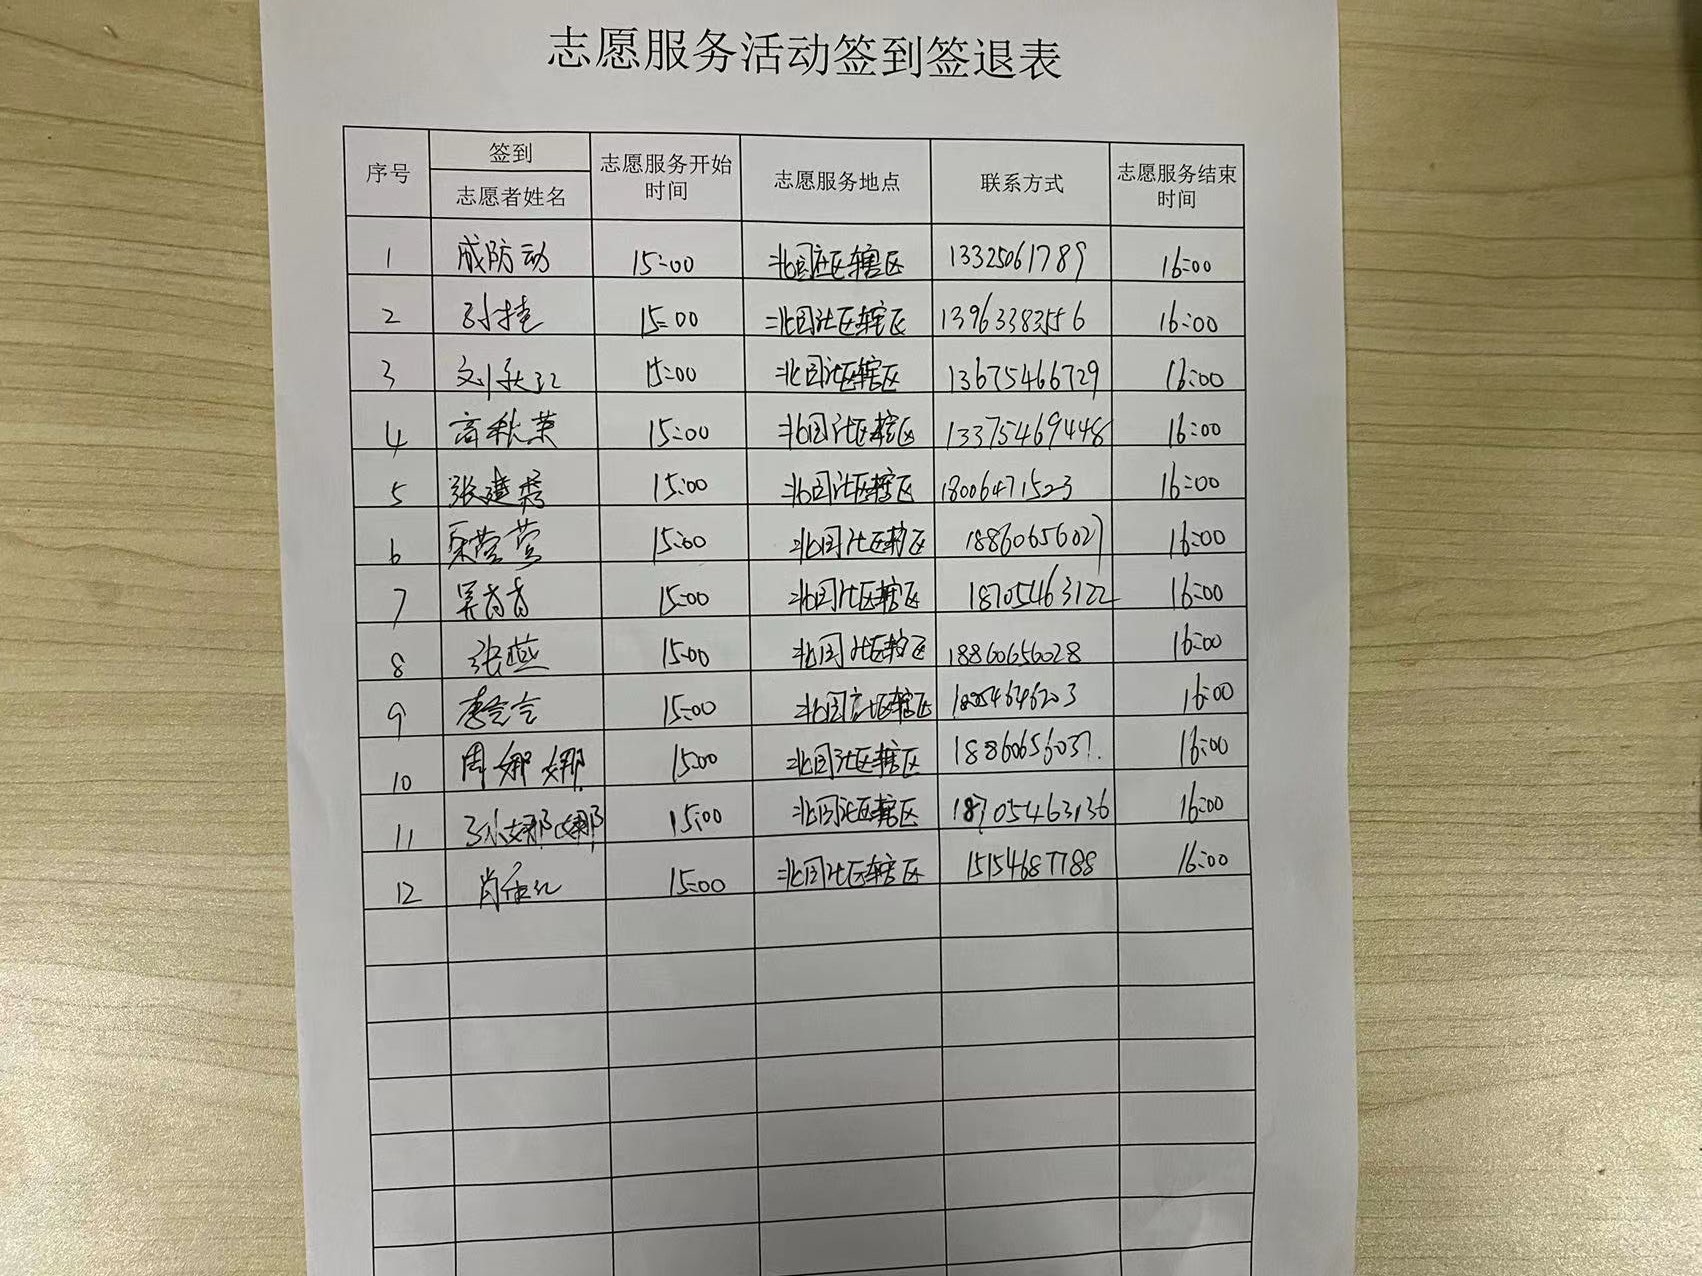 志愿服务活动签到签退表
序号 签到 志愿者姓名 志愿服务开始时间 志愿服务地点 联系方式 志愿服务结束时间
1 成防动 15:00 北园社区辖区 13325061789 16:00
2 孙桂 15:00 北园社区辖区 13963383556 16:00
3 刘秋红 15:00 北园社区辖区 13675466729 16:00
4 高秋荣 15:00 北园社区辖区 13375469448 16:00
5 张建秀 15:00 北园社区辖区 18006471523 16:00
6 15:00 北园社区辖区 18860656027 16:00
7 吴肖肖 15:00 北园社区辖区 18705463122 16:00
8 张燕 15:00 北园社区辖区 18860656028 16:00
9 李会会 15:00 北园社区辖区 16:00
10 周娜娜 15:00 北园社区辖区 18860656037 16:00
11 孙娜娜 15:00 北园社区辖区 18705463136 16:00
12 15:00 北园社区辖区 15154687788 16:00